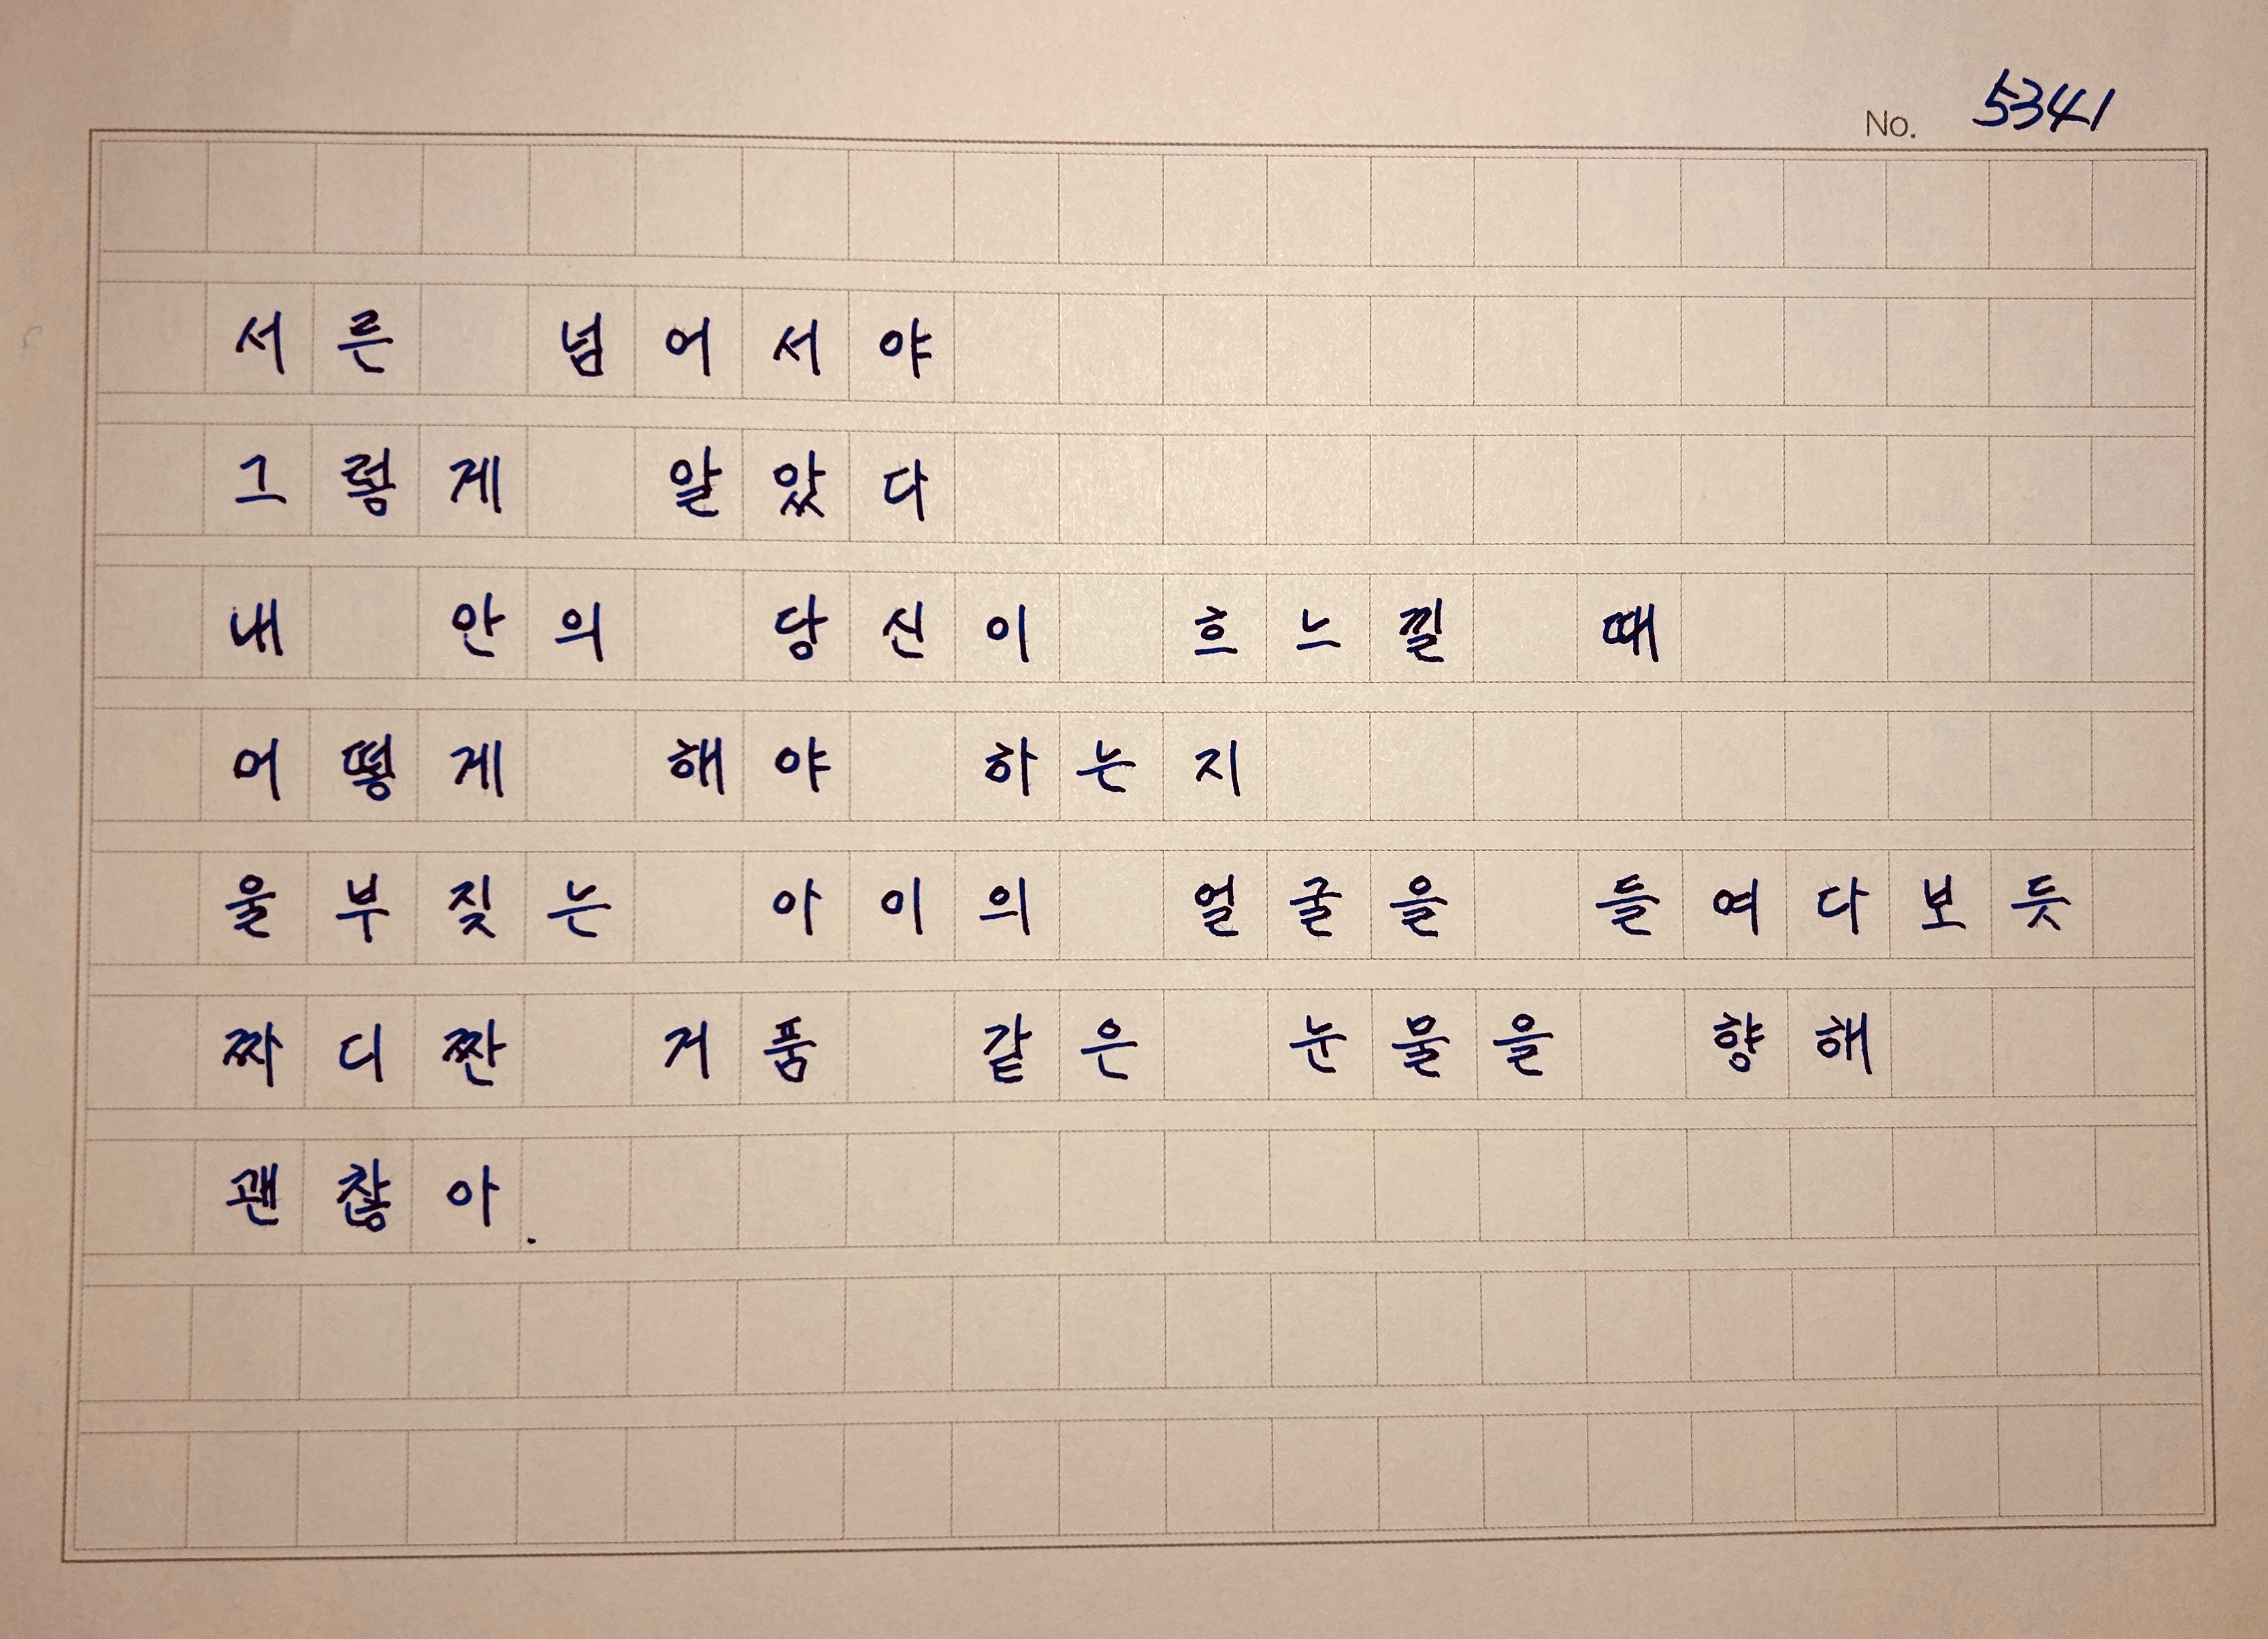 No. 5341
서른 넘어서야
그렇게 알았다
내 안의 당신이 흐느낄 때
어떻게 해야 하는지
울부짖는 아이의 얼굴을 들여다보듯
짜디짠 거품 같은 눈물을 향해
괜찮아.